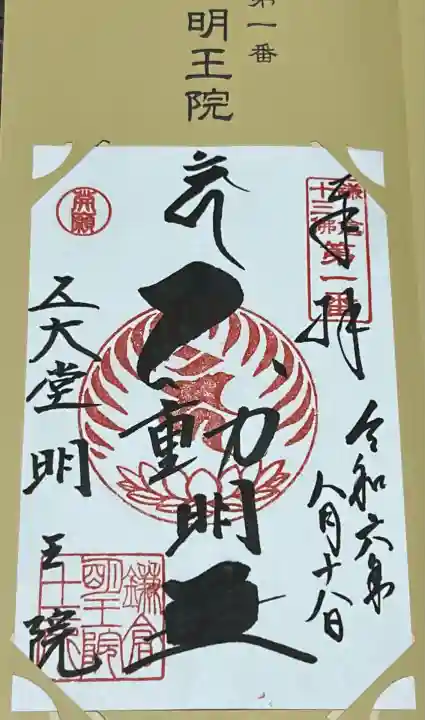 第一番
明王院
奉拝
鎌倉
十三佛
第一番
令和六年
八月十八日
不動明王
發願
五大堂明王院
鎌倉
明王院